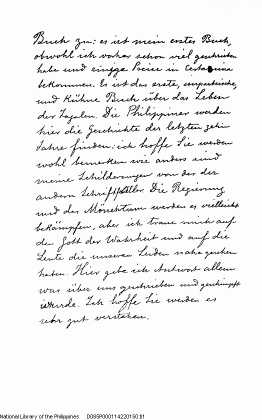 Buch zu: es ist mein erstes Buch,
obwohl ich vorher schon viel geschrieben
habe und einige Preise in
bekommen. Es ist das erste, unparteiische
und kühne Buch über das Leben
der Tagalen. Die Philippiner werden
hier die Geschichte der letzten zehn
Jahre finden; ich hoffe Sie werden
wohl bemerken wie anders sind
meine Schilderungen von der der
andern Schriftsteller. Die Regierung
und das Mönchtum werden es vielleicht
bekämpfen, aber ich traue mich auf
den Gott der Wahrheit und auf die
Leute die unsere Leiden nahe gesehen
haben. Hier gebe ich Antwort allem
was über uns geschrieben und geschimpft
wurde. Ich hoffe Sie werden es
sehr gut verstehen.
National Library of the Philippines